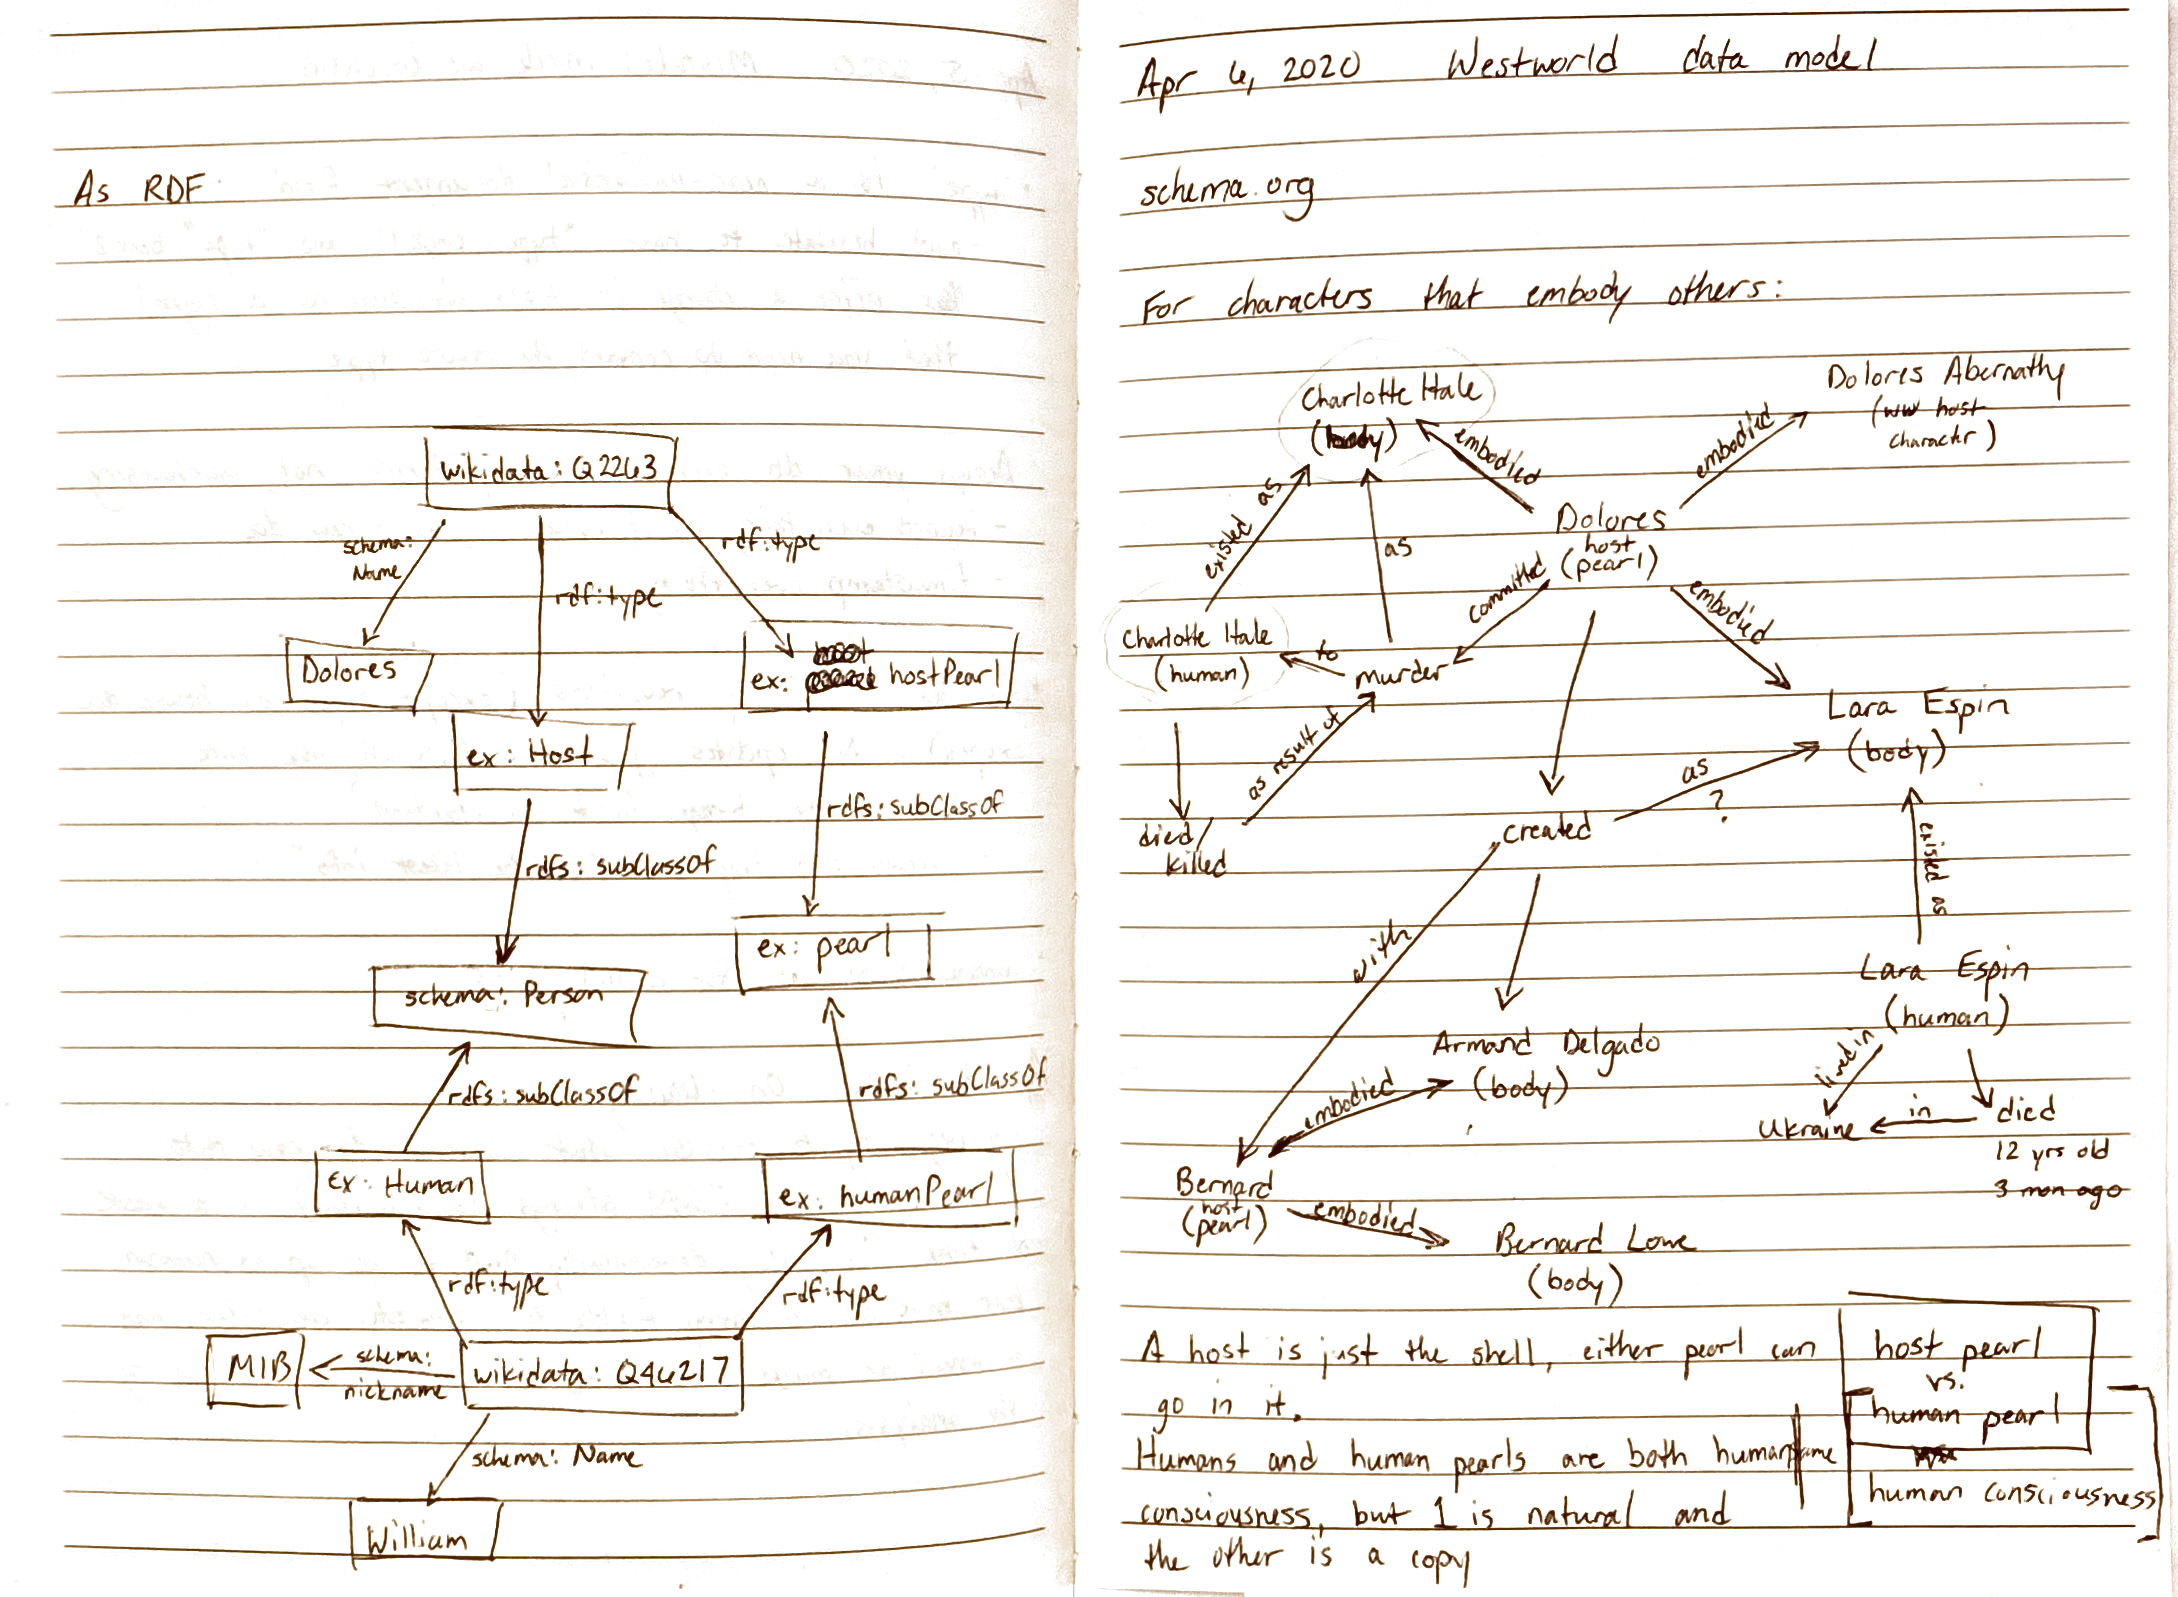 As RDF
wikidata: Q2263
schema:
Name
rdf:type
rdf:type
Dolores
ex: hostPearl
ex: Host
rdfs: subClassOf
rdfs: subClassOf
ex: pearl
schema: Person
rdfs: subClassOf
rdfs: subClassOf
ex: Human
ex: humanPearl
rdf:type
rdf:type
MIB
schema:
nickname
wikidata: Q46217
schema: Name
William
Apr 6, 2020 Westworld data model
schema.org
For characters that embody others:
Charlotte Hale
(body)
embodied
embodied
Dolores Abernathy
(ww host
character)
existed as
as
Dolores
host
(pearl)
committed
embodied
Charlotte Hale
(human)
to
murder
as result of
Lara Espin
(body)
as
?
died/
killed
created
existed as
with
Lara Espin
(human)
Armand Delgado
(body)
embodied
lived in
Ukraine
in
died
12 yrs old
3 mon ago
Bernard
host
(pearl)
embodied
Bernard Lowe
(body)
A host is just the shell, either pearl can
go in it.
Humans and human pearls are both human
consciousness, but 1 is natural and
the other is a copy
host pearl
vs.
human pearl
same
human consciousness